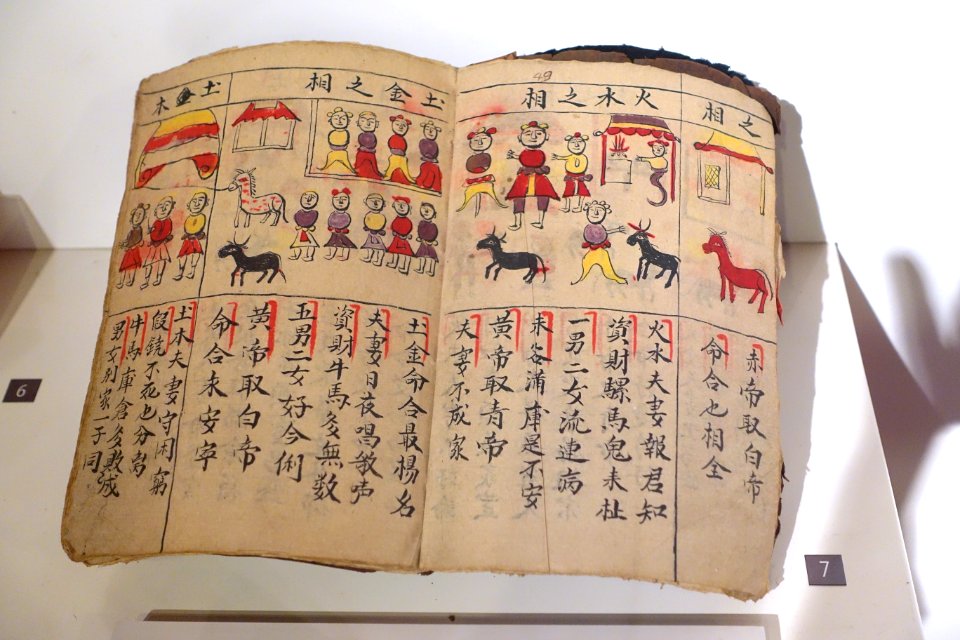 49
之相
赤帝取白帝
命合也相全
火水之相
火水夫妻報君知
資財騾馬鬼未扯
一男二女流連病
米谷浦庫是不安
黃帝取青帝
夫妻不成家
土金之相
土金命合最揚名
夫妻日夜唱敎声
資財牛馬多無数
五男二女好今俐
黃帝取白帝
命合未安宰
土金木
土木夫妻守闲窮
假饒不死也分离
牛馬庫倉多敗
男女别家一子同
6
7